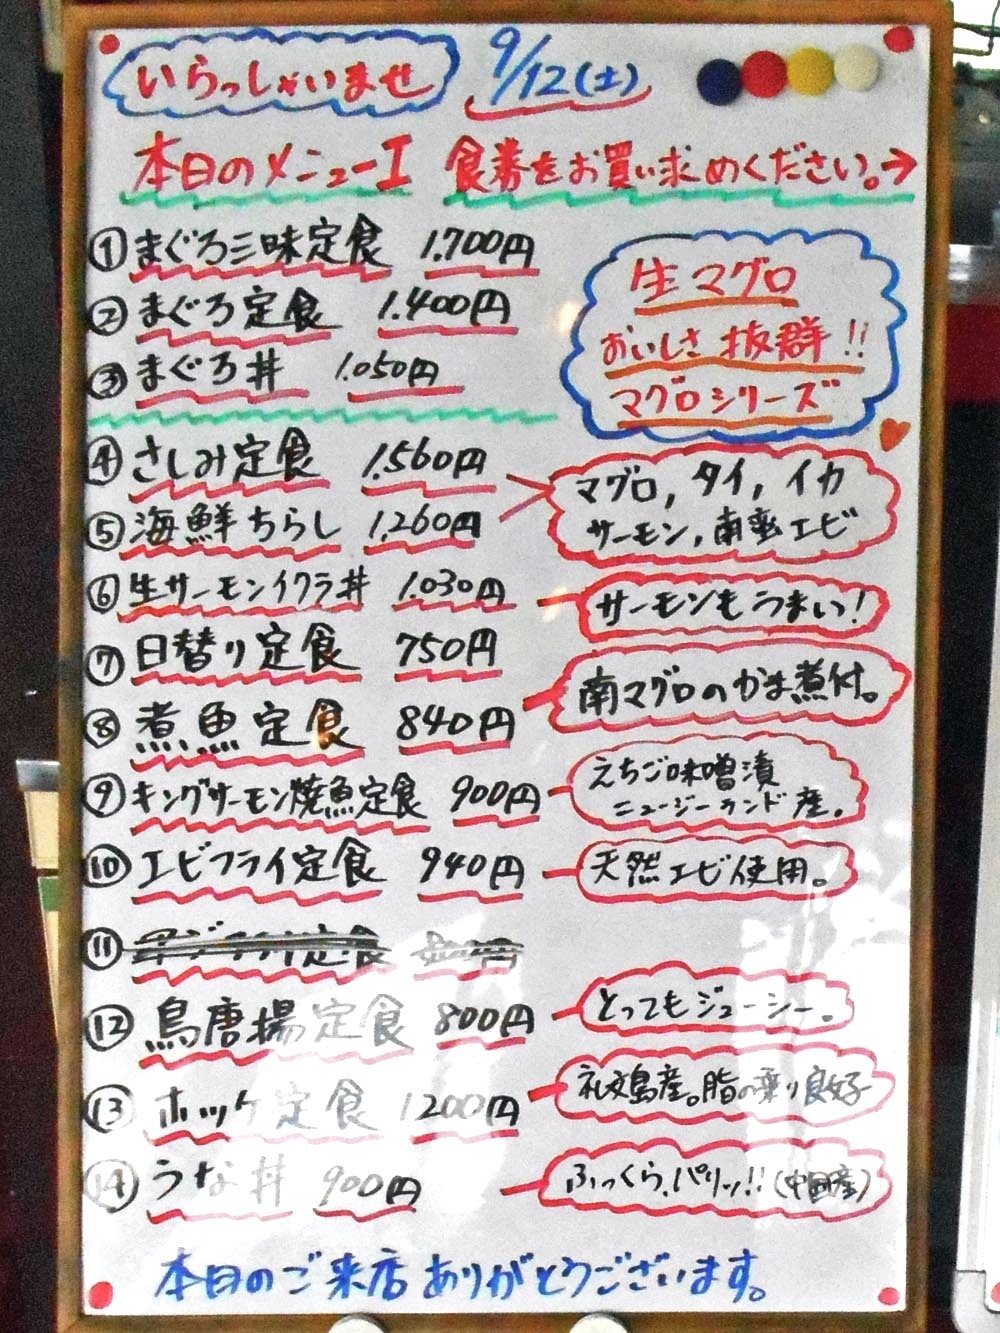 いらっしゃいませ 9/12(土)
本日のメニューI 食券をお買い求めください。→
① まぐろ三味定食 1.700円
② まぐろ定食 1.400円
③ まぐろ丼 1.050円
生マグロ
おいしさ抜群!!
マグロシリーズ
④ さしみ定食 1.560円
⑤ 海鮮ちらし 1,260円
マグロ, タイ, イカ
サーモン, 南蛮エビ
⑥ 生サーモンイクラ丼 1.030円
サーモンもうまい!
⑦ 日替り定食 750円
⑧ 煮魚定食 840円
南マグロのかま煮付。
⑨ キングサーモン焼魚定食 900円
えちご味噌漬
ニュージーランド産。
⑩ エビフライ定食 940円
天然エビ使用。
⑪ 定食
⑫ 鳥唐揚定食 800円
とってもジューシー。
⑬ ホッケ定食 1200円
礼文島産。脂の乗り良好
⑭ うな丼 900円
ふっくら、パリッ!!(中国産)
本日のご来店ありがとうございます。